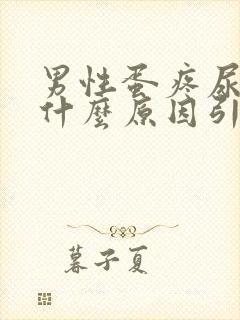 男性蛋疼尿
什麼原因引
暮子夏